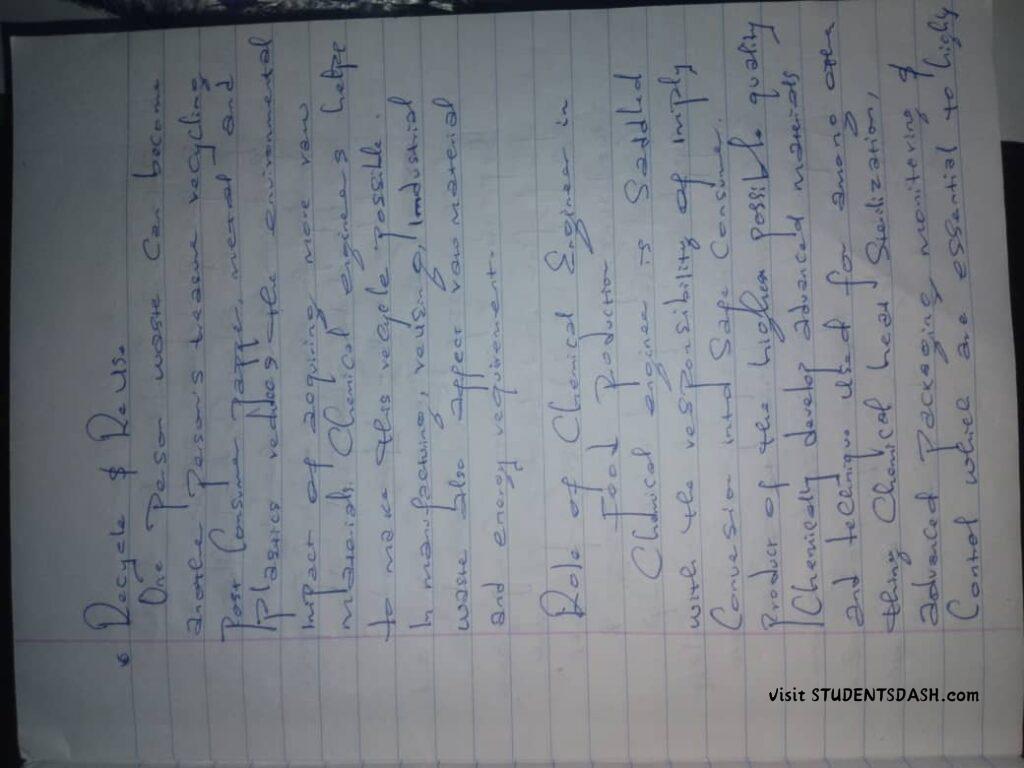 • Recycle & Reuse
One Person waste Can become
another Person's treasure recycling
Post Consumer Paper, metal and
Plastics reduces the environmental
impact of acquiring more raw
materials. Chemical engineers helps
to make this recycle possible.
In manufacturing, reusing, Industrial
waste also affect raw material
and energy requirement.
Role of Chemical Engineer in
Food Production
Chemical engineer is Saddled
with the responsibility of
Conversion into Safe Consume
Product of the highest possible quality
Chemically develop advanced materials
and technique used for among other
thing Chemical heat Sterilization,
advanced Packaging monitoring &
Control which are essential to higly
Visit STUDENTSDASH.com